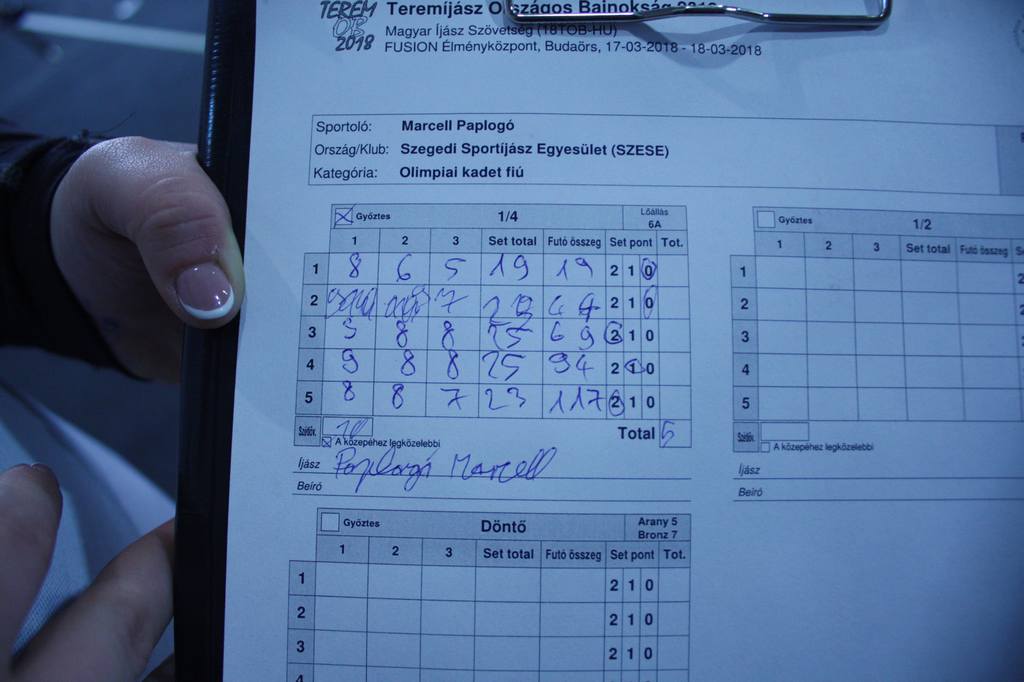 TEREM OB 2018
Teremíjász Országos Bajnokság 2018
Magyar Íjász Szövetség (18TOB-HU)
FUSION Élményközpont, Budaörs, 17-03-2018 - 18-03-2018
Sportoló: Marcell Paplogó
Ország/Klub: Szegedi Sportíjász Egyesület (SZESE)
Kategória: Olimpiai kadet fiú
Győztes 1/4 Lőállás 6A
1 2 3 Set total Futó összeg Set pont Tot.
1 8 6 5 19 19 2 1 0
2 7 2 1 0
3 9 8 8 25 69 2 1 0
4 9 8 8 25 94 2 1 0
5 8 8 7 23 117 2 1 0
Szétlöv. 10 Total 5
A középéhez legközelebbi
Íjász Paplogó Marcell
Beíró
Győztes 1/2
1 2 3 Set total Futó összeg
1
2
3
4
5
Szétlöv.
A középéhez legközelebbi
Íjász
Beíró
Győztes Döntő Arany 5 Bronz 7
1 2 3 Set total Futó összeg Set pont Tot.
1 2 1 0
2 2 1 0
3 2 1 0